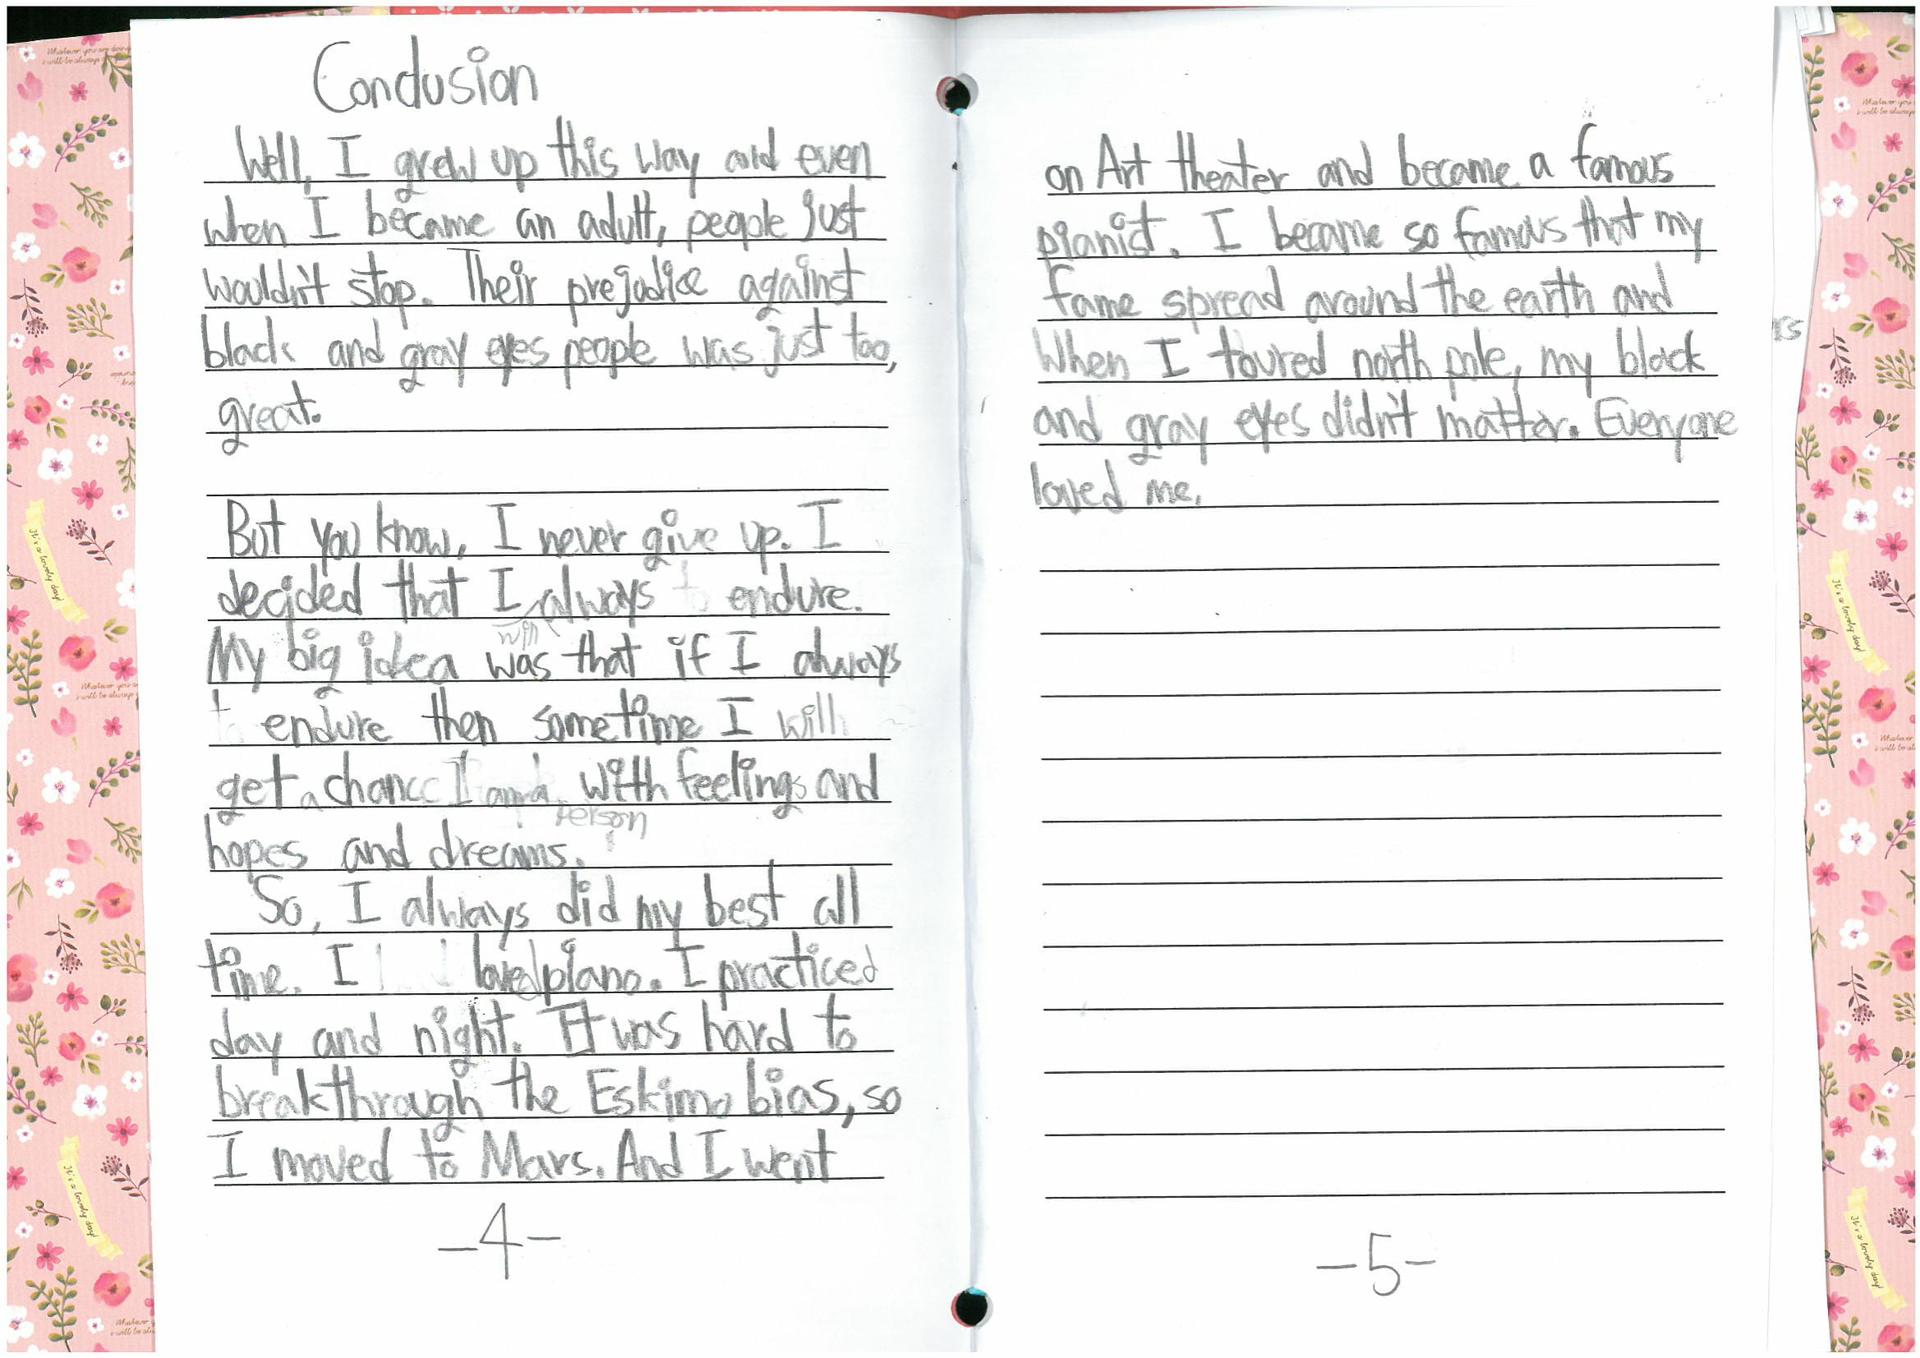 Conclusion
Well, I grew up this way and even
when I became an adult, people just
wouldn't stop. Their prejudice against
black and gray eyes people was just too,
great.
But you know, I never give up. I
decided that I always endure.
will
My big idea was that if I always
endure then sometime I will
get a chance I and with feelings and
person
hopes and dreams.
So, I always did my best all
time. I loved piano. I practiced
day and night. It was hard to
breakthrough the Eskimo bias, so
I moved to Mars. And I went
-4-
on Art theater and became a famous
pianist. I became so famous that my
fame spread around the earth and
When I toured north pole, my black
and gray eyes didn't matter. Everyone
loved me.
-5-